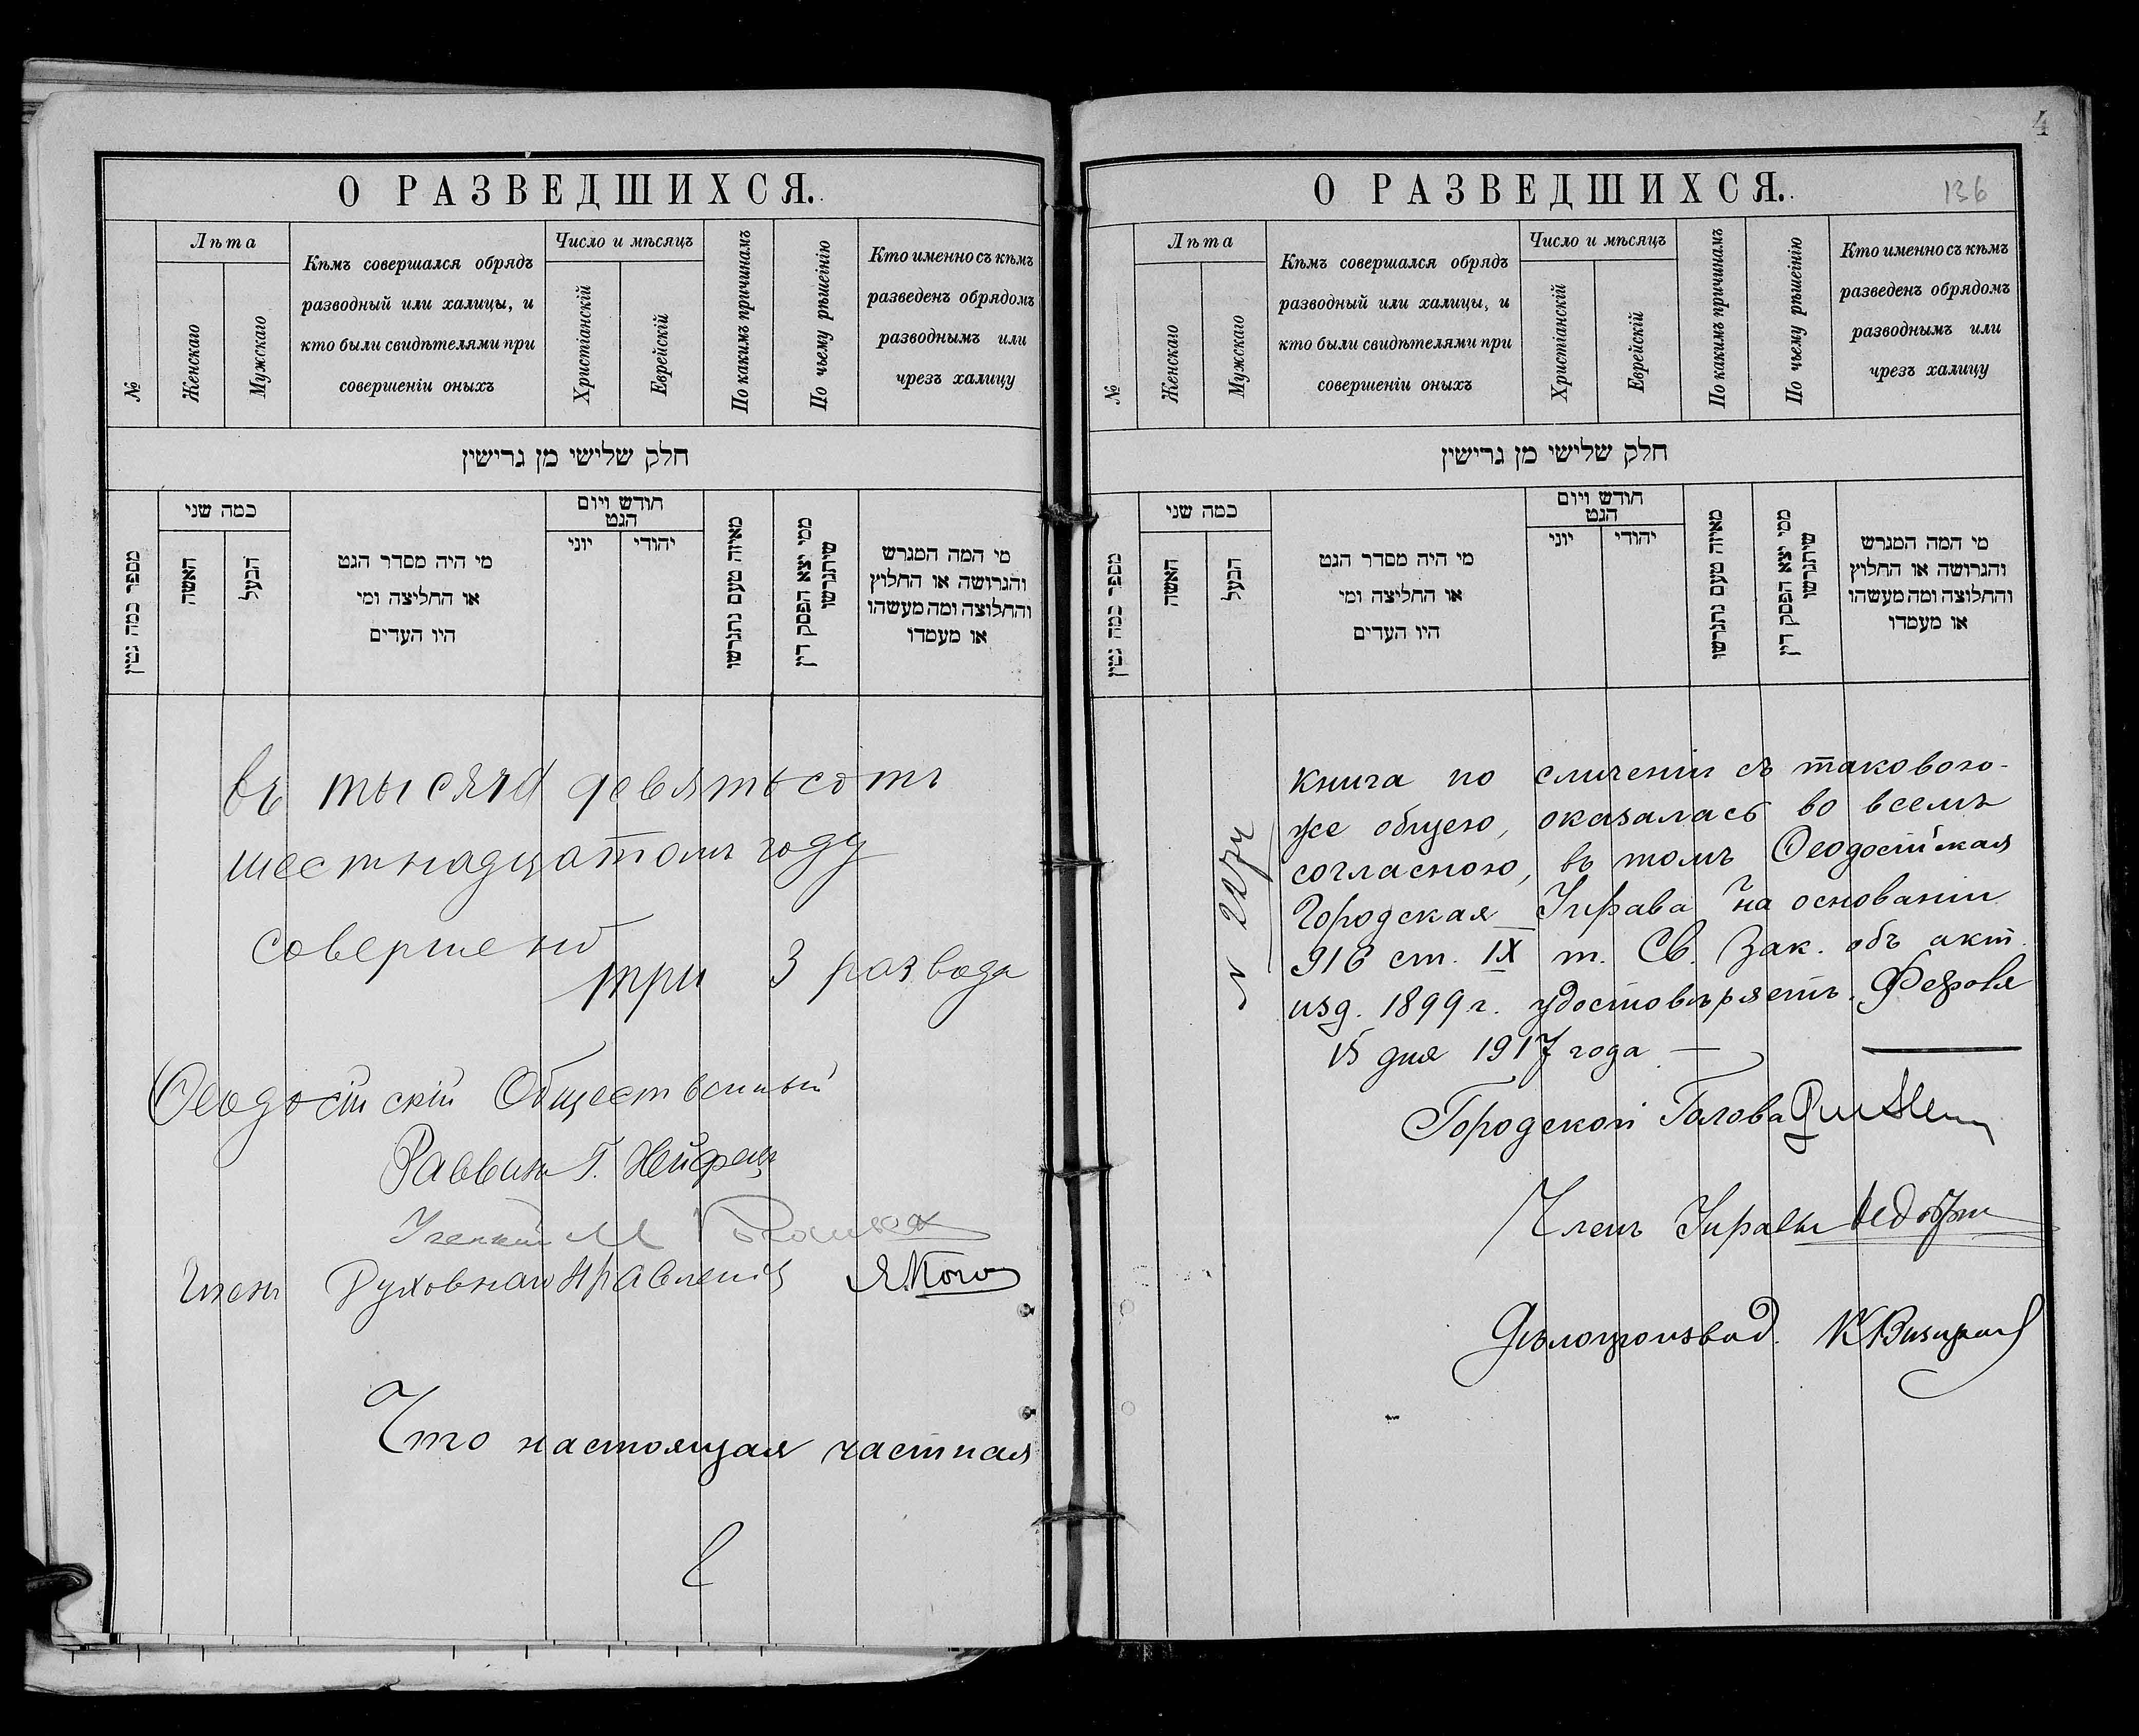 О РАЗВЕДШИХСЯ.
№
Лѣта
Женскаго
Мужскаго
Кѣмъ совершался обрядъ
разводный или халицы, и
кто были свидѣтелями при
совершеніи оныхъ
Число и мѣсяцъ
Христіанскій
Еврейскій
По какимъ причинамъ
По чьему рѣшеінію
Кто именно съ кѣмъ
разведенъ обрядомъ
разводнымъ или
чрезъ халицу
חלק שלישי מן גרישין
מספר כמה גטין
כמה שני
האשה
הבעל
מי היה מסדר הגט
או החליצה ומי
היו העדים
חודש ויום
הגט
יוני
יהודי
מאיזה טעם נתגרשו
ממי יצא הפסק דין
שיתגרשו
מי המה המגרש
והגרושה או החלוץ
והחלוצה ומה מעשהו
או מעמדו
въ тысяча девятьсотъ
шестнадцатомъ году
совершено
три 3 развода
Ѳеодосійскій Общественный
Раввинъ Г.
М
Членъ Духовнаго Правленія
Что настоящая частная
4
136
О РАЗВЕДШИХСЯ.
№
Лѣта
Женскаго
Мужскаго
Кѣмъ совершался обрядъ
разводный или халицы, и
кто были свидѣтелями при
совершеніи оныхъ
Число и мѣсяцъ
Христіанскій
Еврейскій
По какимъ причинамъ
По чьему рѣшеінію
Кто именно съ кѣмъ
разведенъ обрядомъ
разводнымъ или
чрезъ халицу
חלק שלישי מן גרישין
מספר כמה גטין
כמה שני
האשה
הבעל
מי היה מסדר הגט
או החליצה ומי
היו העדים
חודש ויום
הגט
יוני
יהודי
מאיזה טעם נתגרשו
ממי יצא הפסק דין
שיתגרשו
מי המה המגרש
והגרושה או החלוץ
והחלוצה ומה מעשהו
או מעמדו
книга по сличеніи съ таковою-
же общею, оказалась во всемъ
согласною, въ томъ Ѳеодосійская
Городская Управа на основаніи
916 ст. IX т. Св. Зак. объ акт.
изд. 1899 г. удостовѣряетъ. Февраля
15 дня 1917 года
Городской Голова
Членъ Управы
Дѣлопроизвод.